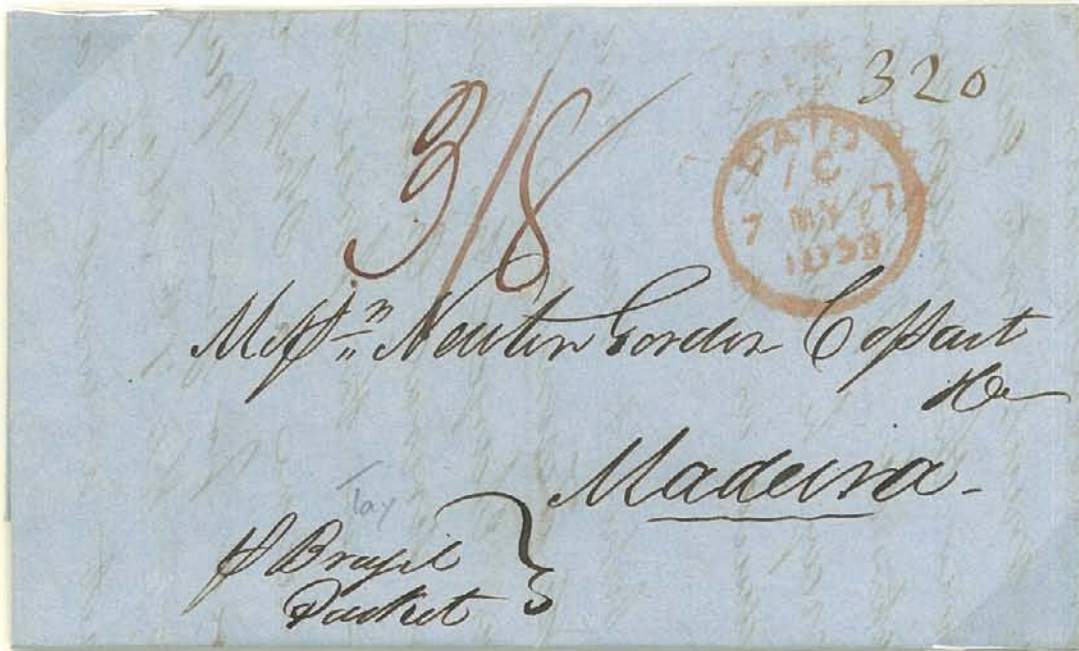 320
3/8
PAID
1C
7 MY 7
1853
Mess.rs Newton Gordon Cossart
& Co
Madeira -
Tay
p Brazil
Packet